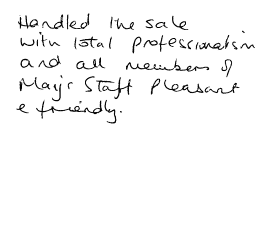 Handled the sale
with total professionalism
and all members of
May's Staff Pleasant
& friendly.